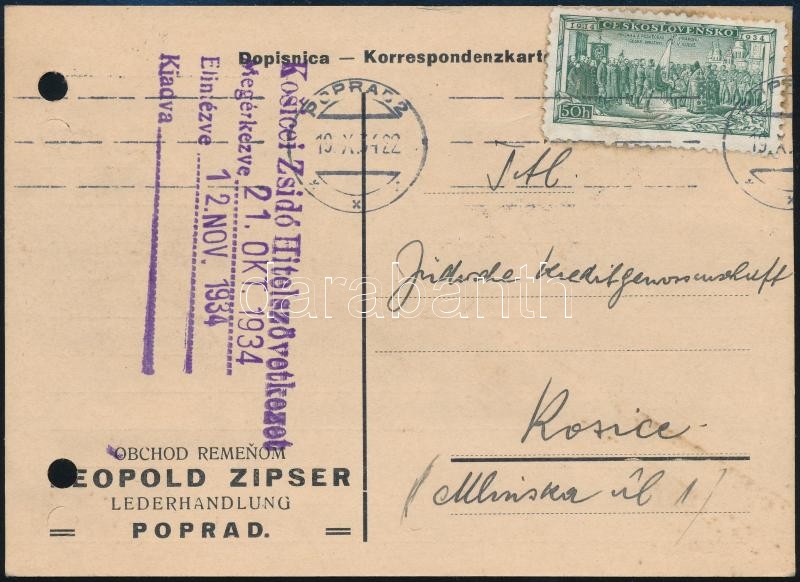 Dopisnica — Korrespondenzkarte
1914 ČESKOSLOVENSKO 1934
50h
POPRAD 2
19.X.34 22
Kosicei Zsidó Hitelszövetkezet
Megérkezve 21. OKT. 1934
Elintézve 12. NOV. 1934
Kiadva
Tit.
Jüdische Kreditgenossenschaft
Kosice
(Mlinska úl 1)
darabanth
OBCHOD REMEŇOM
LEOPOLD ZIPSER
LEDERHANDLUNG
POPRAD.